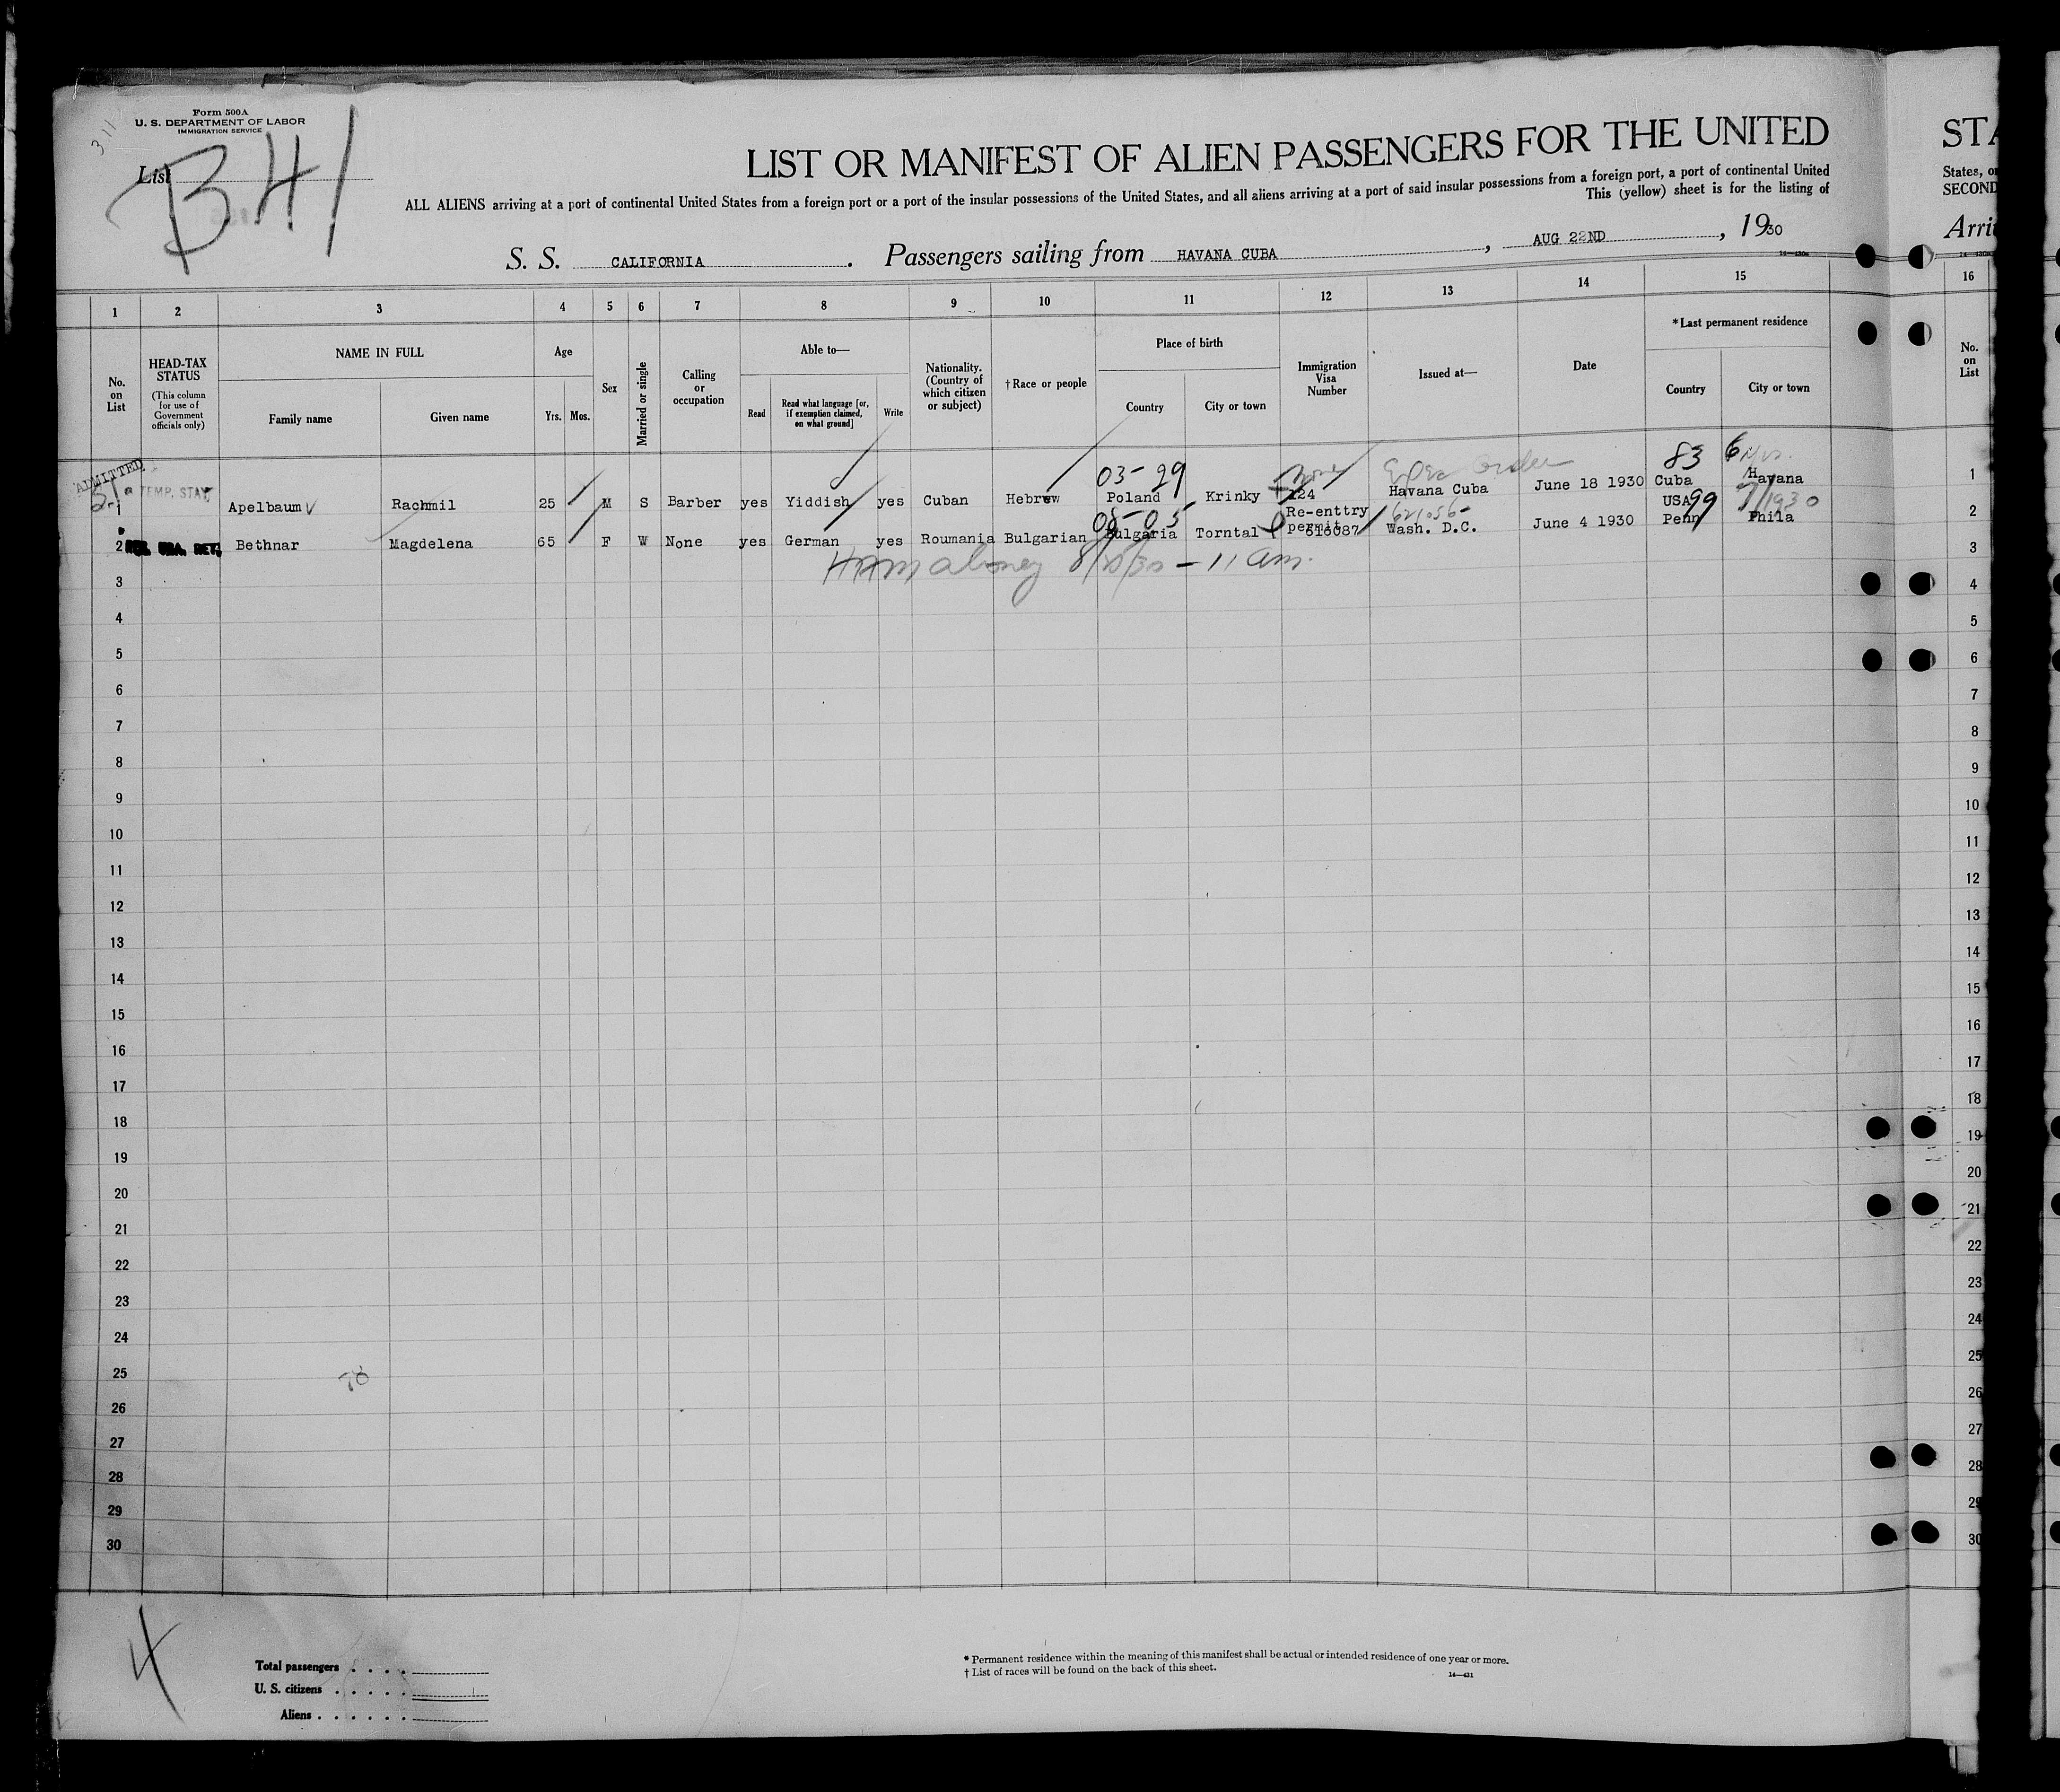 Form 500A
U. S. DEPARTMENT OF LABOR
IMMIGRATION SERVICE
311
List B41
LIST OR MANIFEST OF ALIEN PASSENGERS FOR THE UNITED
ALL ALIENS arriving at a port of continental United States from a foreign port or a port of the insular possessions of the United States, and all aliens arriving at a port of said insular possessions from a foreign port, a port of continental United
This (yellow) sheet is for the listing of
S. S. CALIFORNIA . Passengers sailing from HAVANA CUBA , AUG 22ND , 1930
STA
States, o
SECOND
Arri
1 2 3 4 5 6 7 8 9 10 11 12 13 14 15 16
No. on List
HEAD-TAX STATUS
(This column for use of Government officials only)
NAME IN FULL
Family name
Given name
Age
Yrs. Mos.
Sex
Married or single
Calling or occupation
Able to—
Read
Read what language [or, if exemption claimed, on what ground]
Write
Nationality. (Country of which citizen or subject)
†Race or people
Place of birth
Country
City or town
Immigration Visa Number
Issued at—
Date
*Last permanent residence
Country
City or town
No. on List
ADMITTED
TEMP. STAY
03-29
None
Order
83
6
1 Apelbaum Rachmil 25 M S Barber yes Yiddish yes Cuban Hebrew Poland Krinky 124 Havana Cuba June 18 1930 Cuba Havana
08-05
621056
99
7/1930
2 Bethnar Magdelena 65 F W None yes German yes Roumania Bulgarian Bulgaria Torntal Re-enttry permit 616087 Wash. D.C. June 4 1930 USA Penn Phila
HHMaloney 8/25/30 - 11 am.
3
4
5
6
7
8
9
10
11
12
13
14
15
16
17
18
19
20
21
22
23
24
25
26
27
28
29
30
1
2
3
4
5
6
7
8
9
10
11
12
13
14
15
16
17
18
19
20
21
22
23
24
25
26
27
28
29
30
Total passengers . . . .
U. S. citizens . . . . .
Aliens . . . . . .
* Permanent residence within the meaning of this manifest shall be actual or intended residence of one year or more.
† List of races will be found on the back of this sheet.
14—431